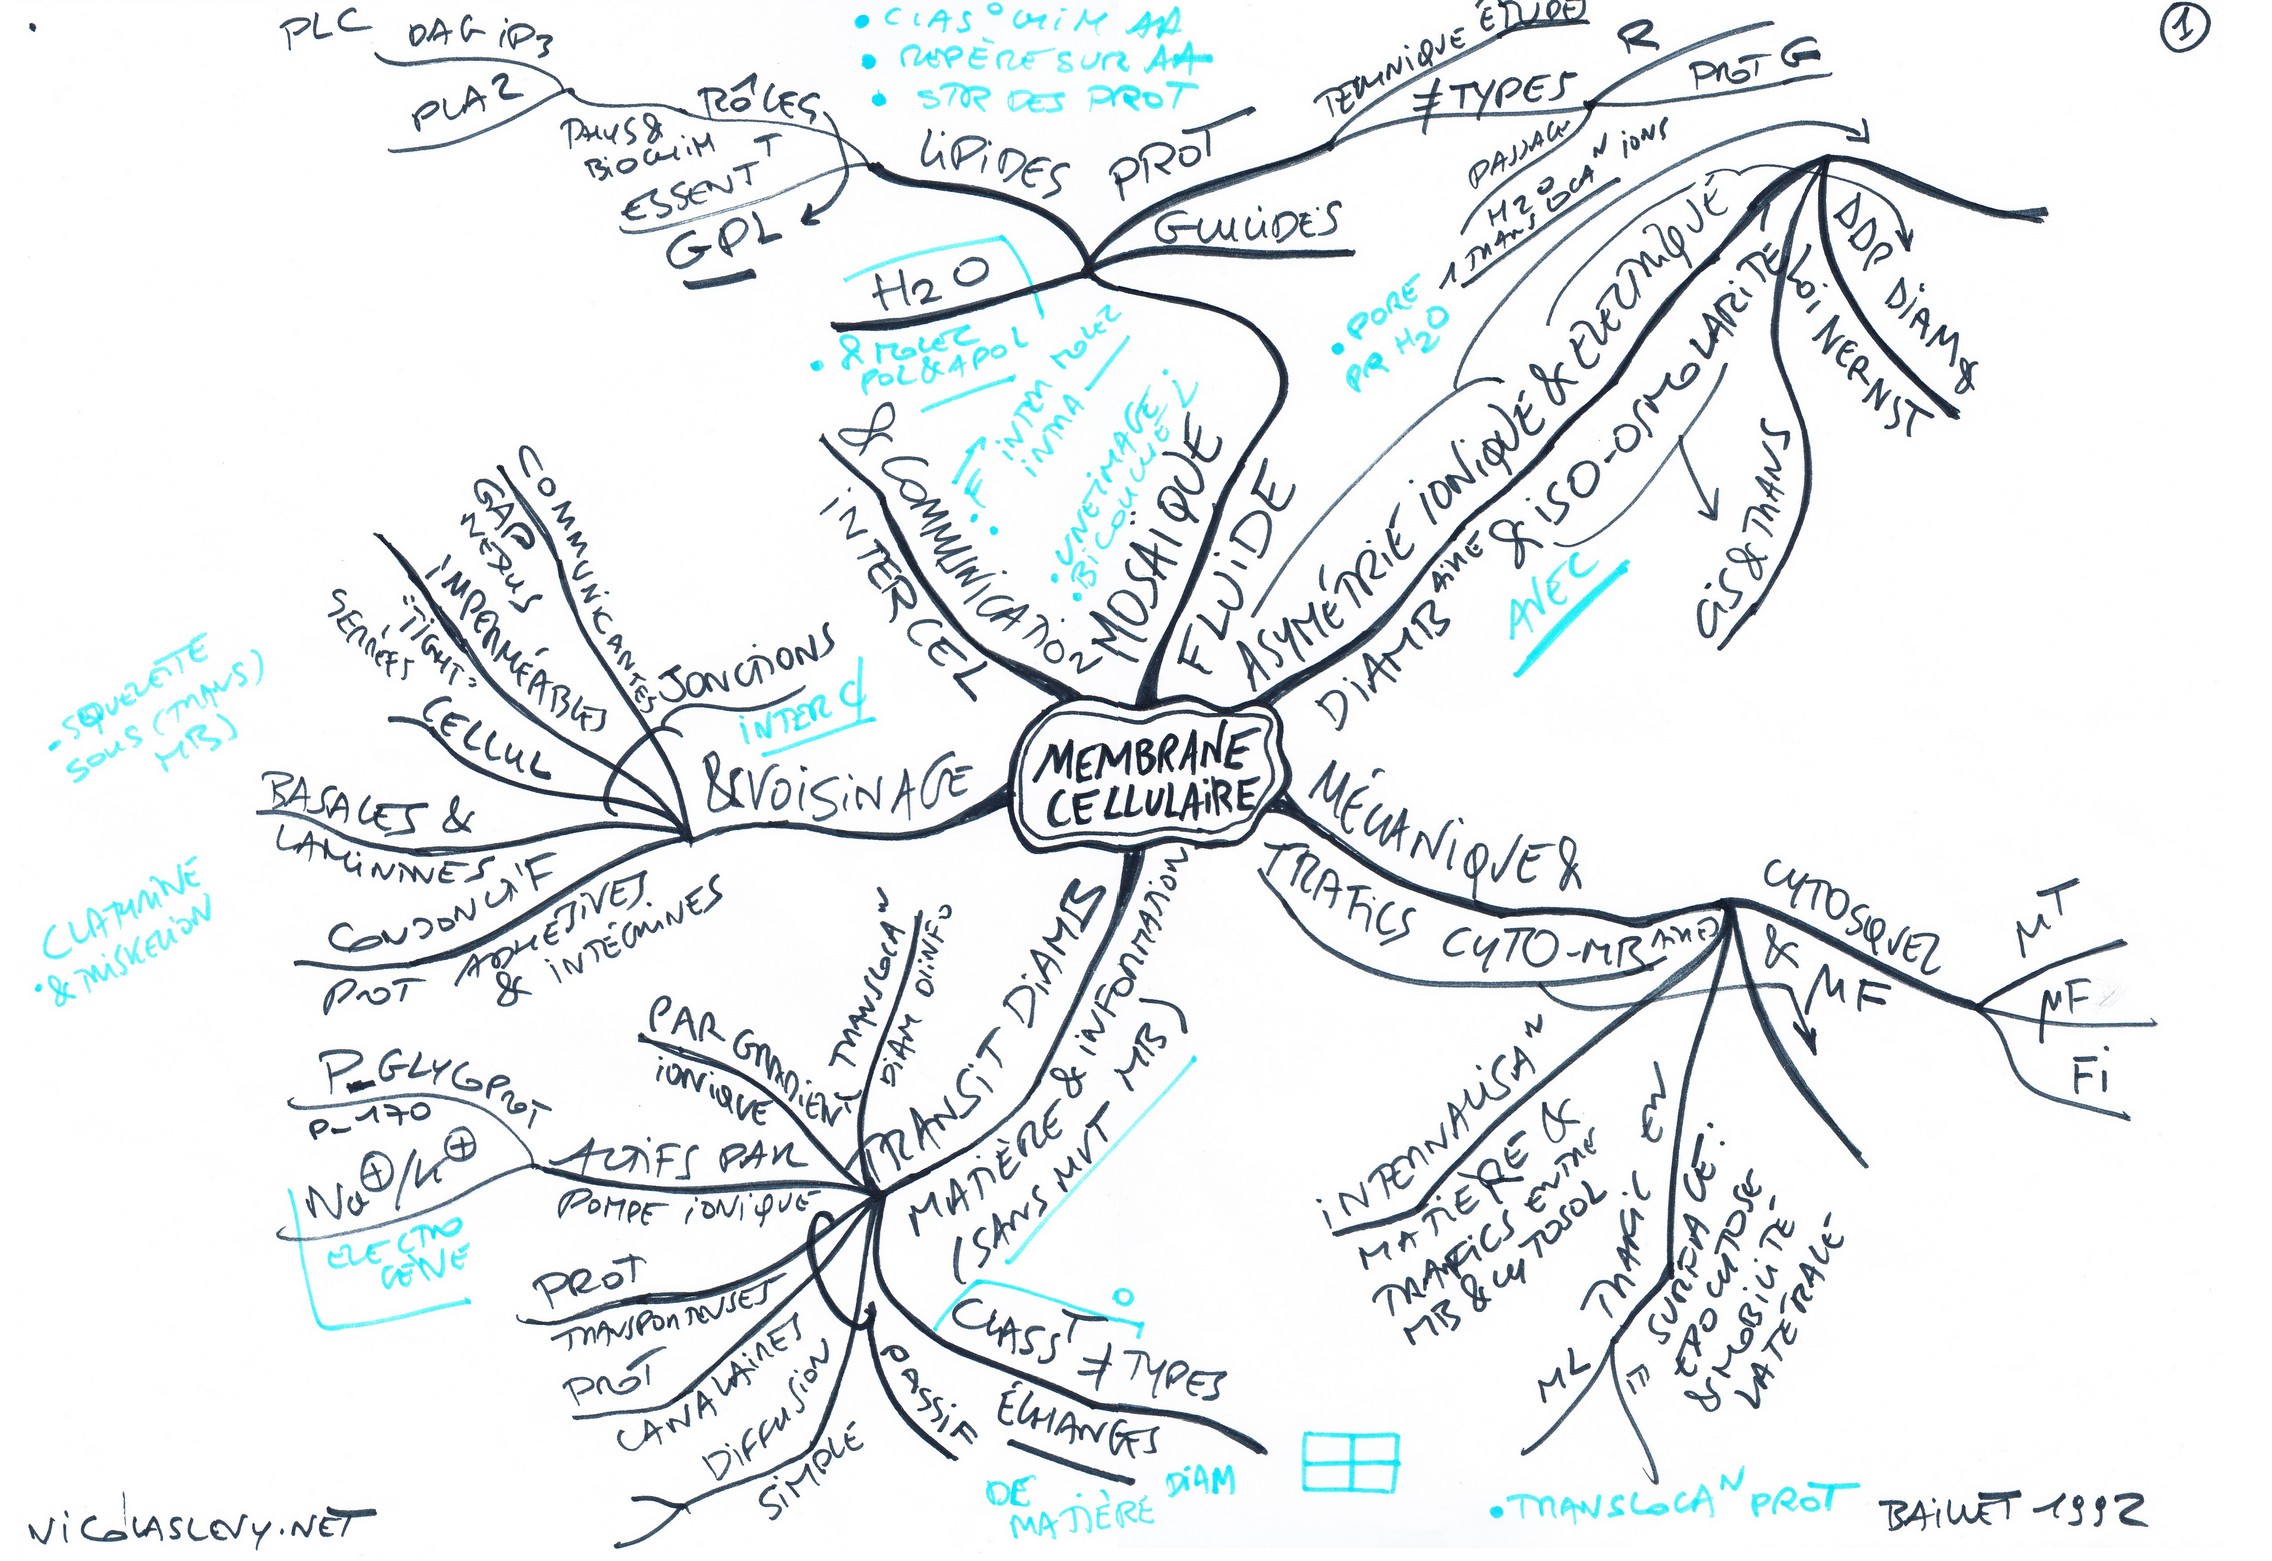 PLC
DAG iP3
PLA2
RÔLES
PHYS &
BIOCHIM
ESSENT T
GPL
LIPIDES
• CLAS° CHIM AA
• REPÈRE SUR AA
• STR DES PROT
PROT
TECHNIQUE ÉTUDE
≠ TYPES
R
PROT G
PASSAGE
H2O
1 TRANSLOCAN IONS
GLUCIDES
H2O
• & MOLEZ
POL & APOL
• PORE
PR H2O
• F
INTER MOLEZ
INTRA
• UNE IMAGE
• BICOUCHE
MOSAÏQUE
FLUIDE
& COMMUNICATIO
INTERCEL
ASYMÉTRIE IONIQUE & ÉLECTRIQUE
DIAMBAIRE & ISO-OSMOLARITÉ
AVEC
DDP DIAMB
LOI NERNST
CIS & TRANS
1
COMMUNICANTES
GAP
NEXUS
IMPERMÉABLES
"TIGHT"
SERRÉES
JONCTIONS
INTER C
CELLUL
BASALES &
LAMININES
CONDON CH'F
PROT ADHÉSIVES
& INTÉGRINES
& VOISINAGE
• SQUELETTE
SOUS (TRANS)
MB)
CLATHRINE
• & TRISKELION
MEMBRANE
CELLULAIRE
MÉCANIQUE &
TRAFICS CYTO-MBAIRES
CYTOSQUEL
& MF
MT
µF
Fi
INTERNALISAN
MATIÈRE &
TRAFICS ENTRE
MB & CYTOSOL
TRAFIC EN
SURFACE:
EXOCYTOSE
& MOBILITÉ
LATÉRALE
ML
E
TRANSIT DIAMB
MATIÈRE & INFORMATION
(SANS MVT MB)
TRANSLOCAN
DIAM D'INFO
PAR GRADIENT
IONIQUE
P-GLYCOPROT
P-170
ACTIFS PAR
POMPE IONIQUE
Na+/K+
ELECTRO
GÈNE
PROT
TRANSPORTEUSES
PROT
CANALAIRES
DIFFUSION
SIMPLE
PASSIF
CLASST° ≠ TYPES
ÉCHANGES
DE
MATIÈRE
DIAM
• TRANSLOCAN PROT
BAILLET 1992
NICOLASLEVY.NET